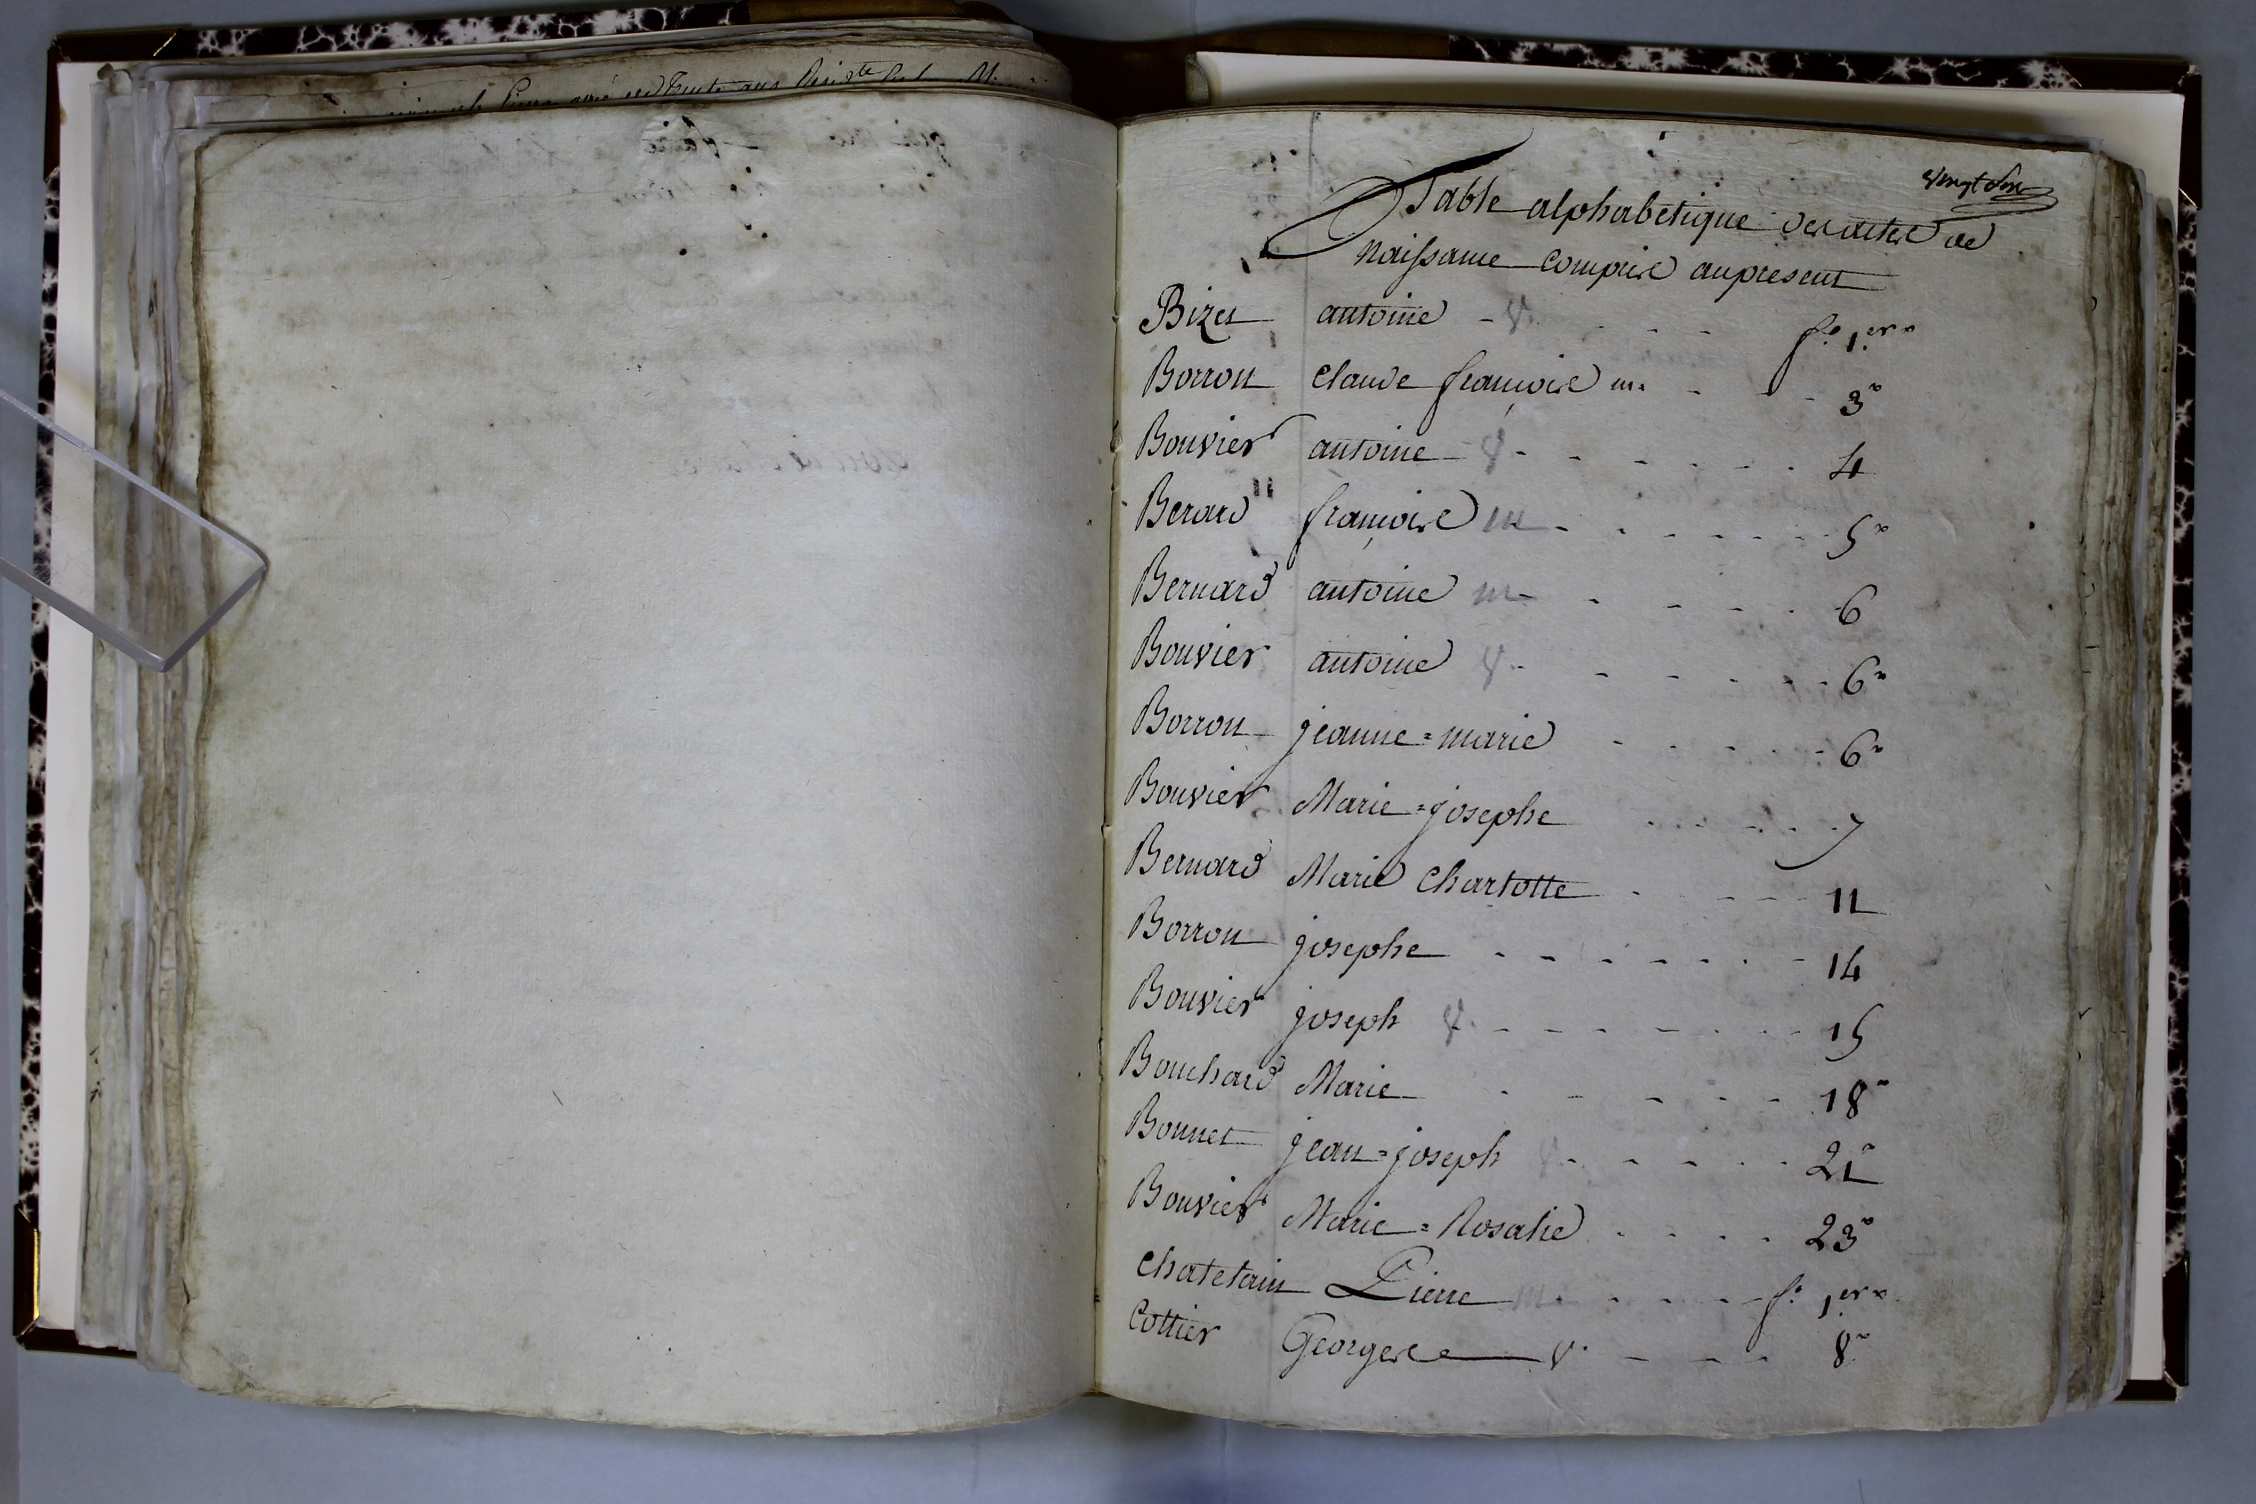 Table alphabetique des actes de
Naissance compris au present
Bizet antoine v. f.o 1.er v.o
Borron claude françois m. 3 v.o
Bouvier antoine v. 4
Berard françois m 5 v.o
Bernard antoine m 6
Bouvier antoine v. 6 v.o
Borron jeanne=marie 6 v.o
Bouvier Marie=josephe 7
Bernard Marie Charlotte 11
Borron josephe 14
Bouvier joseph v. 15
Bouchard Marie 18 v.o
Bonnet jean=joseph v. 21 v.o
Bouvier Marie=Rosalie 23 v.o
Chatelain Pierre m. f.o 1.er v.o
Cottier Georges v. 8 v.o